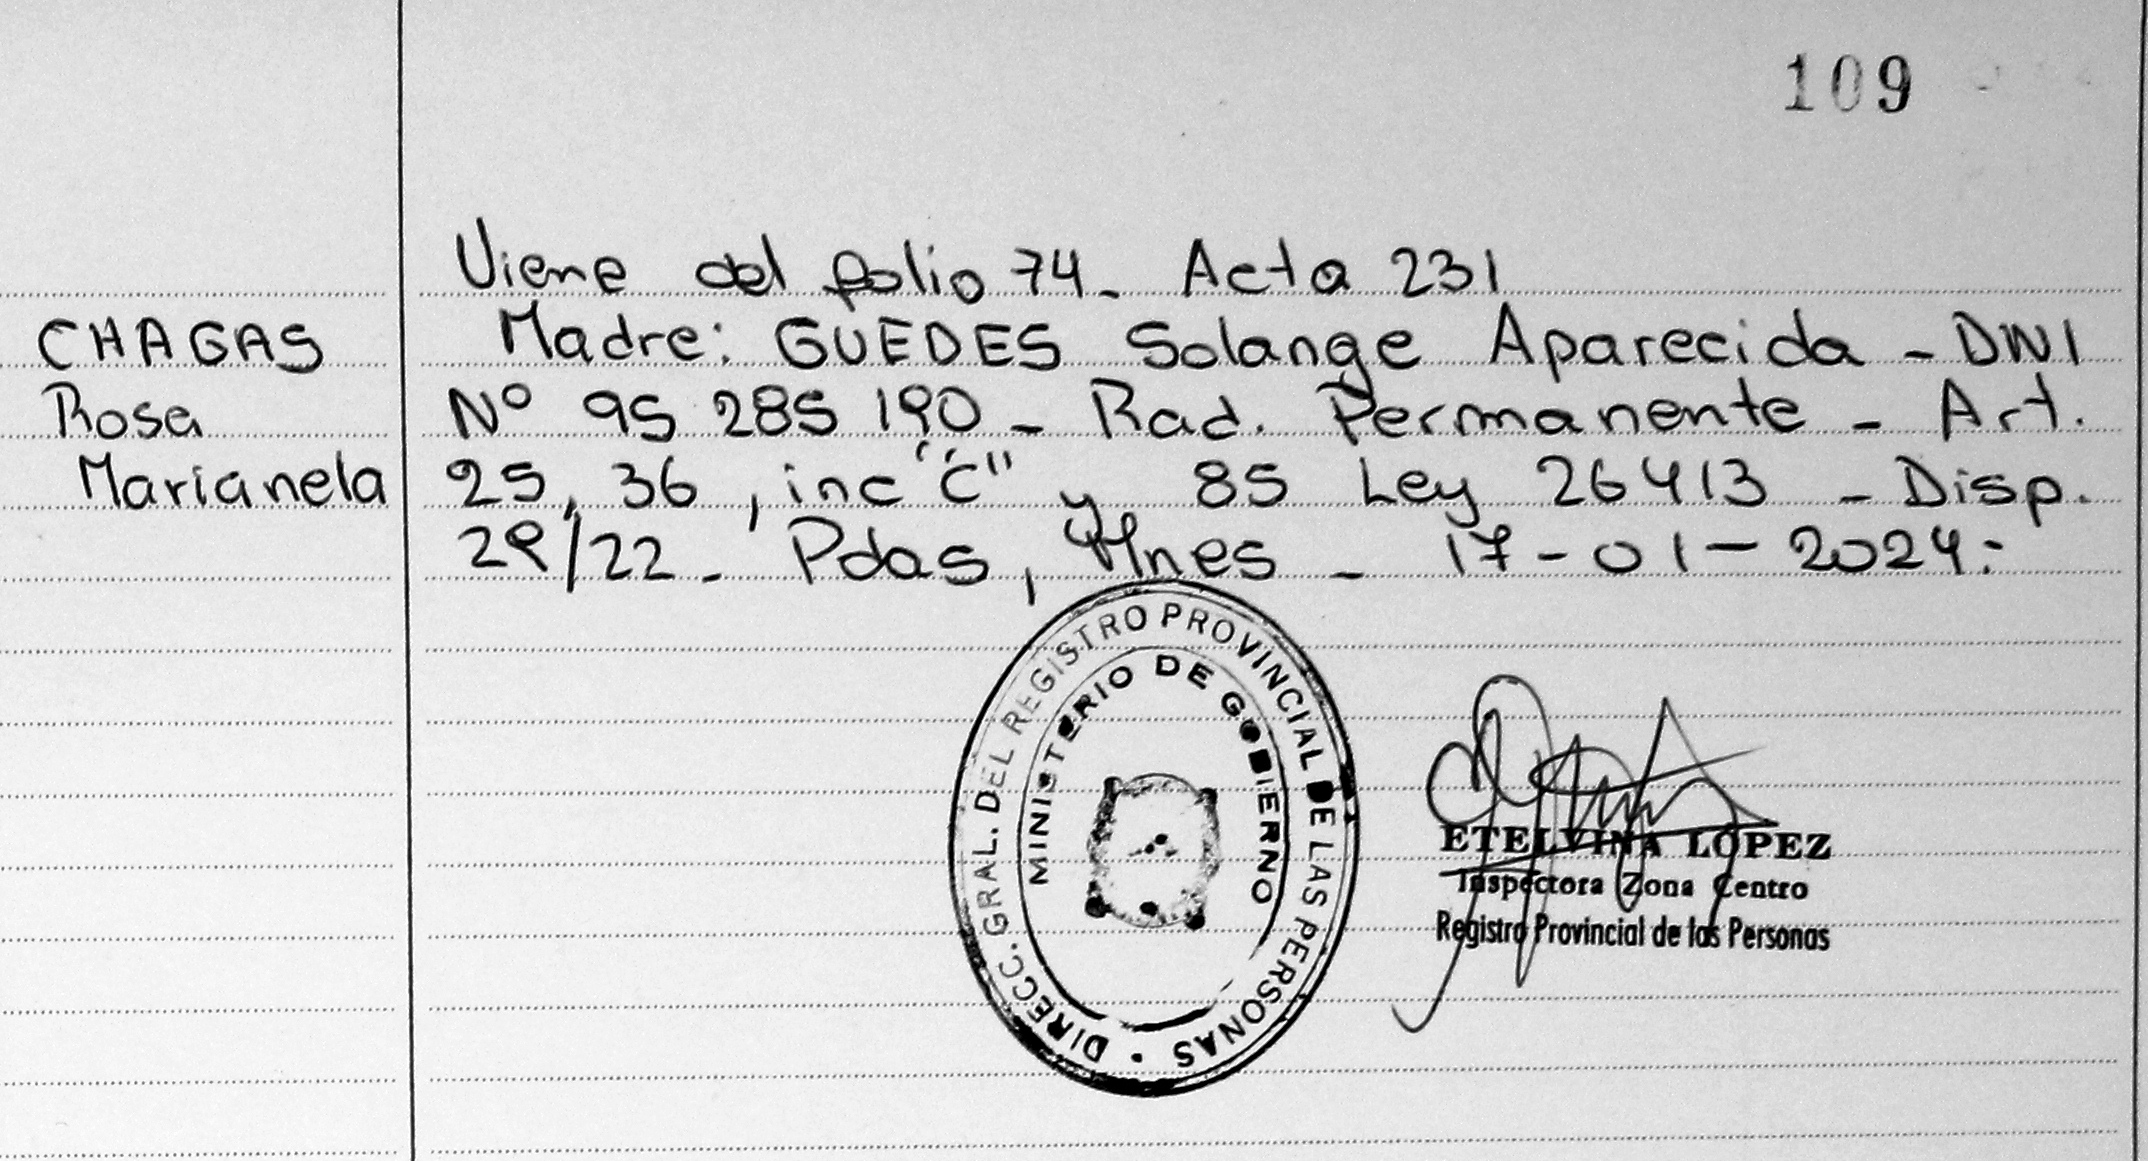 109
Viene del folio 74. Acta 231
CHAGAS
Rosa
Marianela
Madre: GUEDES Solange Aparecida - DNI
Nº 95 285 190 - Rad. Permanente - Art.
25, 36, inc "c" y 85 Ley 26413 - Disp.
29/22. Pdas, Mnes - 17-01-2024:
DIRECC. GRAL. DEL REGISTRO PROVINCIAL DE LAS PERSONAS
MINISTERIO DE GOBIERNO
ETELVINA LOPEZ
Inspectora Zona Centro
Registro Provincial de las Personas